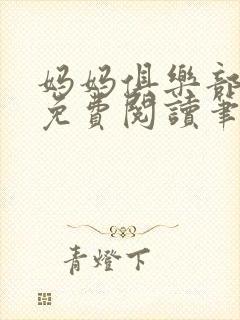 妈妈俱樂部
免費閱讀筆
青燈下